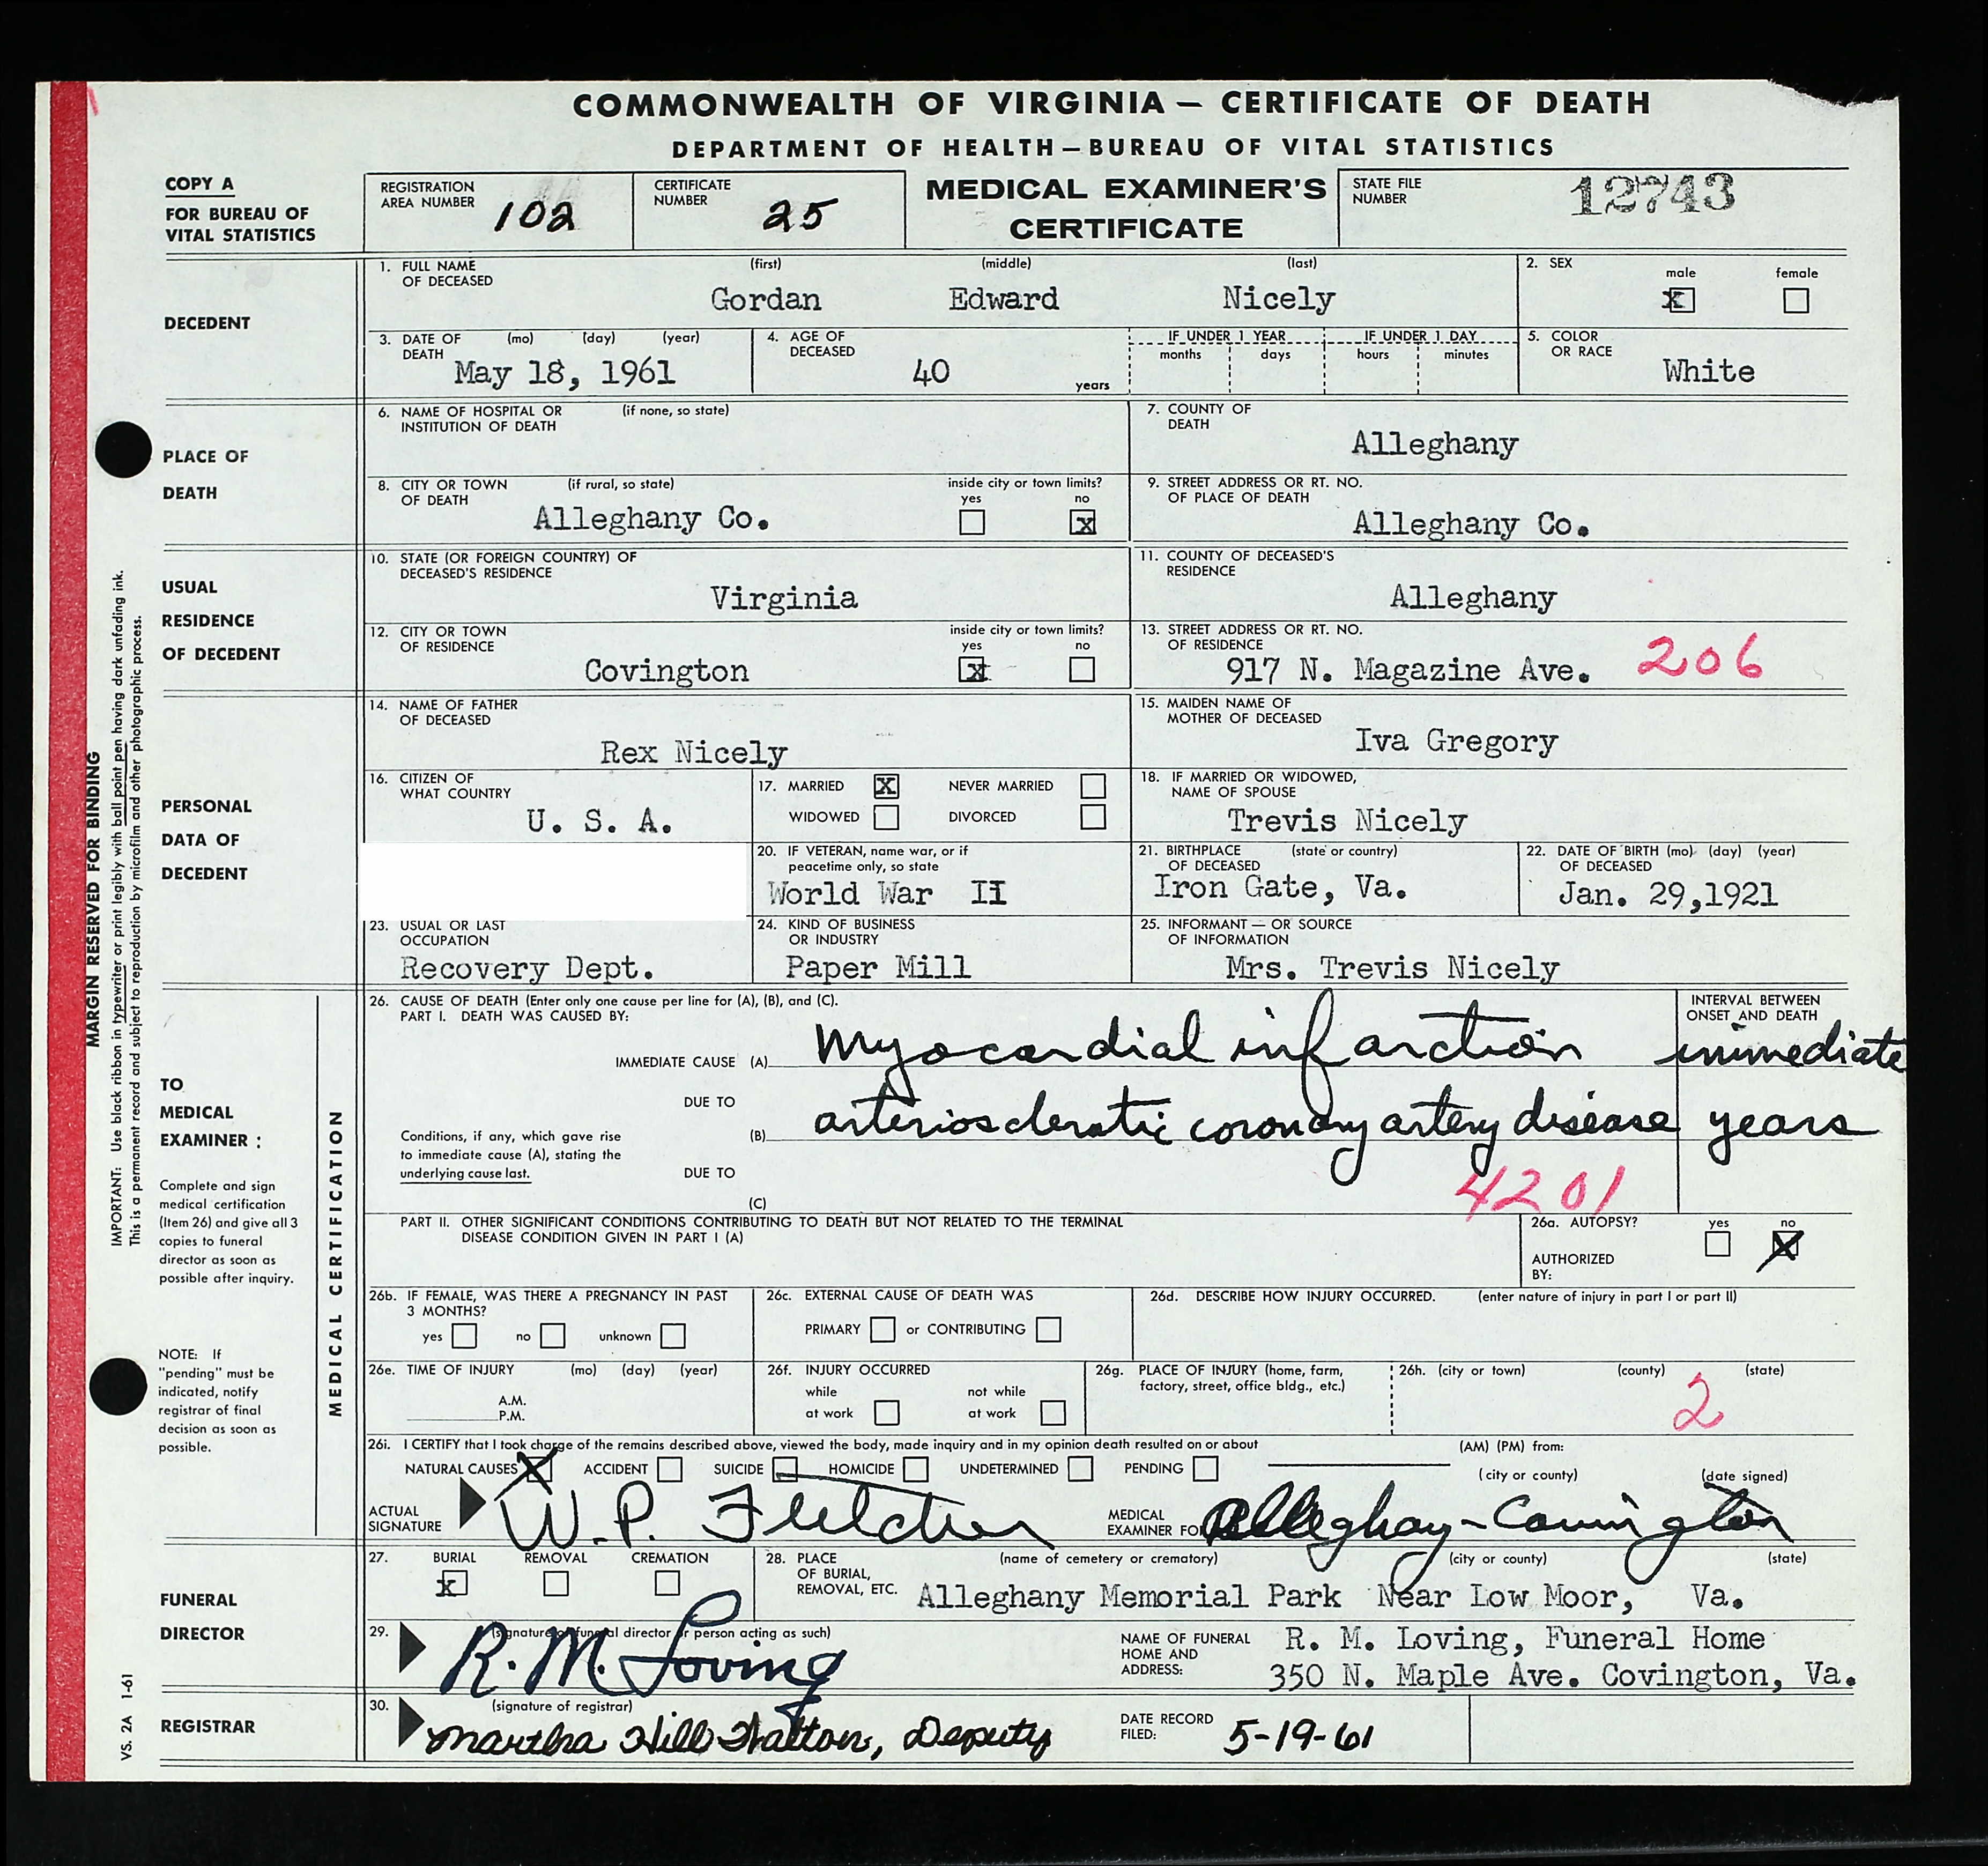 COMMONWEALTH OF VIRGINIA — CERTIFICATE OF DEATH
DEPARTMENT OF HEALTH — BUREAU OF VITAL STATISTICS
COPY A
FOR BUREAU OF
VITAL STATISTICS
REGISTRATION
AREA NUMBER 102
CERTIFICATE
NUMBER 25
MEDICAL EXAMINER'S
CERTIFICATE
STATE FILE
NUMBER 12743
DECEDENT
1. FULL NAME (first) (middle) (last)
OF DECEASED
Gordan Edward Nicely
2. SEX
male female
x
3. DATE OF (mo) (day) (year)
DEATH
May 18, 1961
4. AGE OF
DECEASED
40 years
IF UNDER 1 YEAR IF UNDER 1 DAY
months days hours minutes
5. COLOR
OR RACE
White
PLACE OF
DEATH
6. NAME OF HOSPITAL OR (if none, so state)
INSTITUTION OF DEATH
7. COUNTY OF
DEATH
Alleghany
8. CITY OR TOWN (if rural, so state) inside city or town limits?
OF DEATH yes no
Alleghany Co. x
9. STREET ADDRESS OR RT. NO.
OF PLACE OF DEATH
Alleghany Co.
USUAL
RESIDENCE
OF DECEDENT
10. STATE (OR FOREIGN COUNTRY) OF
DECEASED'S RESIDENCE
Virginia
11. COUNTY OF DECEASED'S
RESIDENCE
Alleghany
12. CITY OR TOWN inside city or town limits?
OF RESIDENCE yes no
Covington x
13. STREET ADDRESS OR RT. NO.
OF RESIDENCE
917 N. Magazine Ave. 206
PERSONAL
DATA OF
DECEDENT
14. NAME OF FATHER
OF DECEASED
Rex Nicely
15. MAIDEN NAME OF
MOTHER OF DECEASED
Iva Gregory
16. CITIZEN OF
WHAT COUNTRY
U. S. A.
17. MARRIED X NEVER MARRIED
WIDOWED DIVORCED
18. IF MARRIED OR WIDOWED,
NAME OF SPOUSE
Trevis Nicely
20. IF VETERAN, name war, or if
peacetime only, so state
World War II
21. BIRTHPLACE (state or country)
OF DECEASED
Iron Gate, Va.
22. DATE OF BIRTH (mo) (day) (year)
OF DECEASED
Jan. 29,1921
23. USUAL OR LAST
OCCUPATION
Recovery Dept.
24. KIND OF BUSINESS
OR INDUSTRY
Paper Mill
25. INFORMANT — OR SOURCE
OF INFORMATION
Mrs. Trevis Nicely
TO
MEDICAL
EXAMINER :
Complete and sign
medical certification
(Item 26) and give all 3
copies to funeral
director as soon as
possible after inquiry.
NOTE: If
"pending" must be
indicated, notify
registrar of final
decision as soon as
possible.
MEDICAL CERTIFICATION
26. CAUSE OF DEATH (Enter only one cause per line for (A), (B), and (C).
PART I. DEATH WAS CAUSED BY:
INTERVAL BETWEEN
ONSET AND DEATH
IMMEDIATE CAUSE (A) Myocardial infarction immediate
DUE TO
(B) arteriosclerotic coronary artery disease years
Conditions, if any, which gave rise
to immediate cause (A), stating the
underlying cause last.
DUE TO
(C)
4201
PART II. OTHER SIGNIFICANT CONDITIONS CONTRIBUTING TO DEATH BUT NOT RELATED TO THE TERMINAL
DISEASE CONDITION GIVEN IN PART I (A)
26a. AUTOPSY? yes no
X
AUTHORIZED
BY:
26b. IF FEMALE, WAS THERE A PREGNANCY IN PAST
3 MONTHS?
yes no unknown
26c. EXTERNAL CAUSE OF DEATH WAS
PRIMARY or CONTRIBUTING
26d. DESCRIBE HOW INJURY OCCURRED. (enter nature of injury in part I or part II)
26e. TIME OF INJURY (mo) (day) (year)
A.M.
P.M.
26f. INJURY OCCURRED
while not while
at work at work
26g. PLACE OF INJURY (home, farm,
factory, street, office bldg., etc.)
26h. (city or town) (county) (state)
2
26i. I CERTIFY that I took charge of the remains described above, viewed the body, made inquiry and in my opinion death resulted on or about (AM) (PM) from:
NATURAL CAUSES X ACCIDENT SUICIDE HOMICIDE UNDETERMINED PENDING
(city or county) (date signed)
ACTUAL
SIGNATURE
W. P. Fletcher
MEDICAL
EXAMINER FOR Alleghany-Covington
FUNERAL
DIRECTOR
27. BURIAL REMOVAL CREMATION
x
28. PLACE (name of cemetery or crematory) (city or county) (state)
OF BURIAL,
REMOVAL, ETC. Alleghany Memorial Park Near Low Moor, Va.
29. (signature of funeral director or person acting as such)
R. M. Loving
NAME OF FUNERAL
HOME AND
ADDRESS:
R. M. Loving, Funeral Home
350 N. Maple Ave. Covington, Va.
REGISTRAR
30. (signature of registrar)
Martha Hill Walton, Deputy
DATE RECORD
FILED: 5-19-61
MARGIN RESERVED FOR BINDING
IMPORTANT: Use black ribbon in typewriter or print legibly with ball point pen having dark unfading ink.
This is a permanent record and subject to reproduction by microfilm and other photographic process.
VS. 2A 1-61